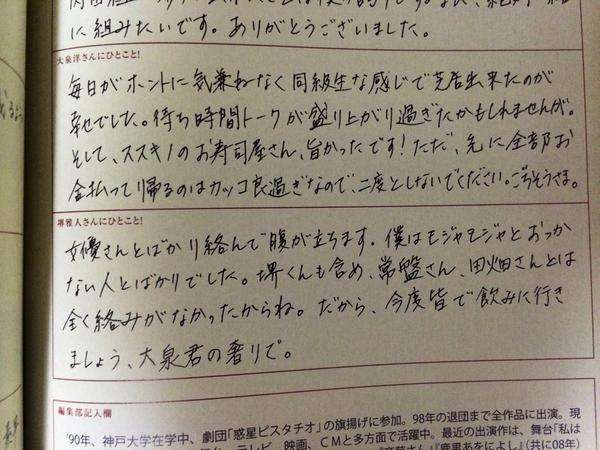 に組みたいです。ありがとうございました。
大泉洋さんにひとこと!
毎日がホントに気兼ねなく同級生な感じで芝居出来たのが
幸せでした。待ち時間トークが盛り上がり過ぎたかもしれませんが。
そして、ススキノのお寿司屋さん、旨かったです!ただ、先に全部お
金払って帰るのはカッコ良過ぎなので、二度としないでください。ごちそうさま。
堺雅人さんにひとこと!
女優さんとばかり絡んで腹が立ちます。僕はモジャモジャとおっか
ない人とばかりでした。堺くんも含め、常盤さん、田畑さんとは
全く絡みがなかったからね。だから、今度皆で飲みに行き
ましょう、大泉君の奢りで。
編集部記入欄
'90年、神戸大学在学中、劇団「惑星ピスタチオ」の旗揚げに参加。98年の退団まで全作品に出演。現
テレビ、映画、CMと多方面で活躍中。最近の出演作は、舞台「私は
『鹿男あをによし』(共に08年)